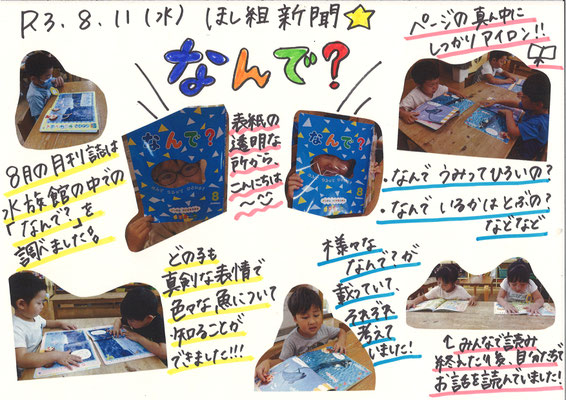 R3.8.11(水) ほし組新聞☆
なんで?
ページの真ん中に
しっかりアイロン!!
表紙の
透明な
所から、
こんにちは
〜
なんで?
8
なんで?
8
8月の月刊誌は
水族館の中での
「なんで?」を
調べました。
・なんで うみってひろいの?
・なんで いるかはとぶの?
などなど
どの子も
真剣な表情で
色々な魚について
知ることが
できました!!!
様々な
なんで?が
載っていて、
それぞれ
考えて
いました!
↑みんなで読み
終わった後、自分たちで
お話を読んでいました!